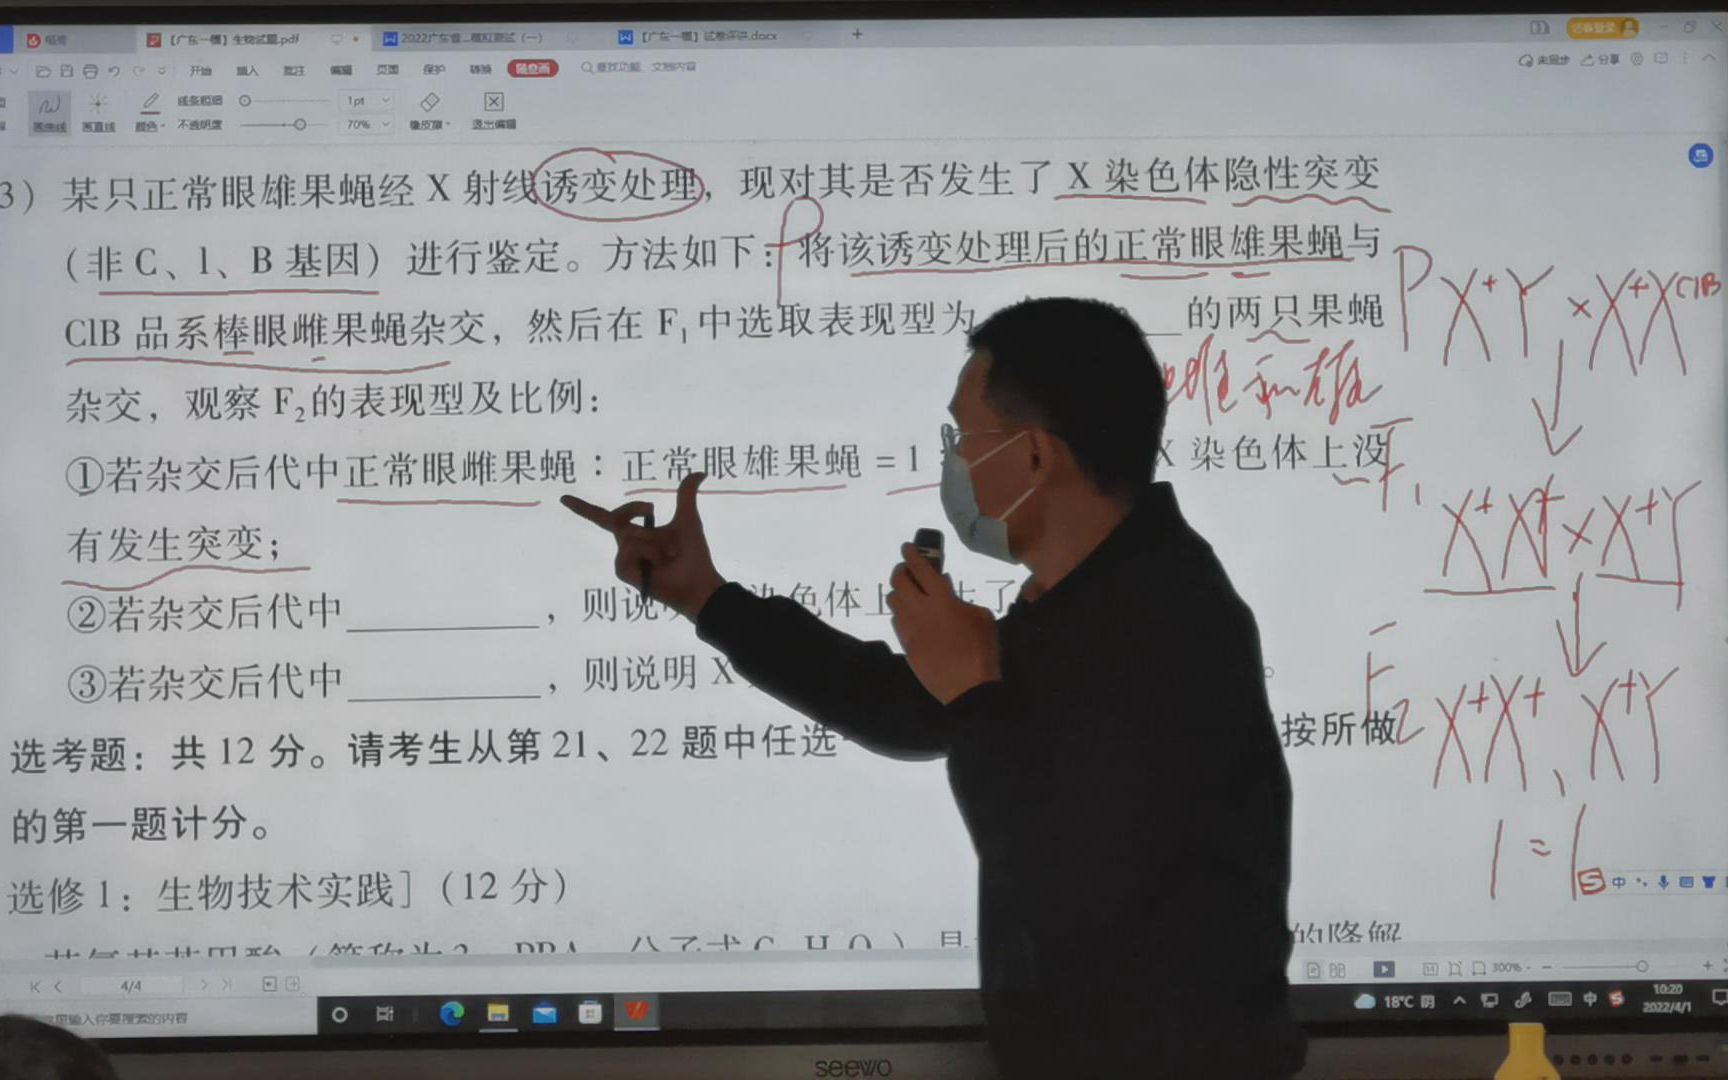 【广东一模】生物试题.pdf
2022广东省一模拟测试（一）
【广东一模】试卷评讲.docx
开始 插入 批注 编辑 页面 保护 转换 随意画 查找功能、文档内容
未同步 分享
线条粗细 1pt
画曲线 画直线 颜色 不透明度 70% 橡皮擦 退出编辑
3）某只正常眼雄果蝇经 X 射线诱变处理，现对其是否发生了 X 染色体隐性突变
（非 C、l、B 基因）进行鉴定。方法如下：将该诱变处理后的正常眼雄果蝇与
ClB 品系棒眼雌果蝇杂交，然后在 F₁ 中选取表现型为 的两只果蝇
杂交，观察 F₂的表现型及比例：
①若杂交后代中正常眼雌果蝇：正常眼雄果蝇 =1 X 染色体上没
有发生突变；
②若杂交后代中________，则说 染色体上 了
③若杂交后代中________，则说明 X 。
选考题：共 12 分。请考生从第 21、22 题中任选 按所做
的第一题计分。
选修 1：生物技术实践］（12 分）
的降解
P
P X⁺Y × X⁺Xᶜˡᴮ
雌和雄
F₁
X⁺X⁺ × X⁺Y
F₂
X⁺X⁺、X⁺Y
1 = 1
4/4
300%
18°C 阴
中
10:20
2022/4/1
seewo